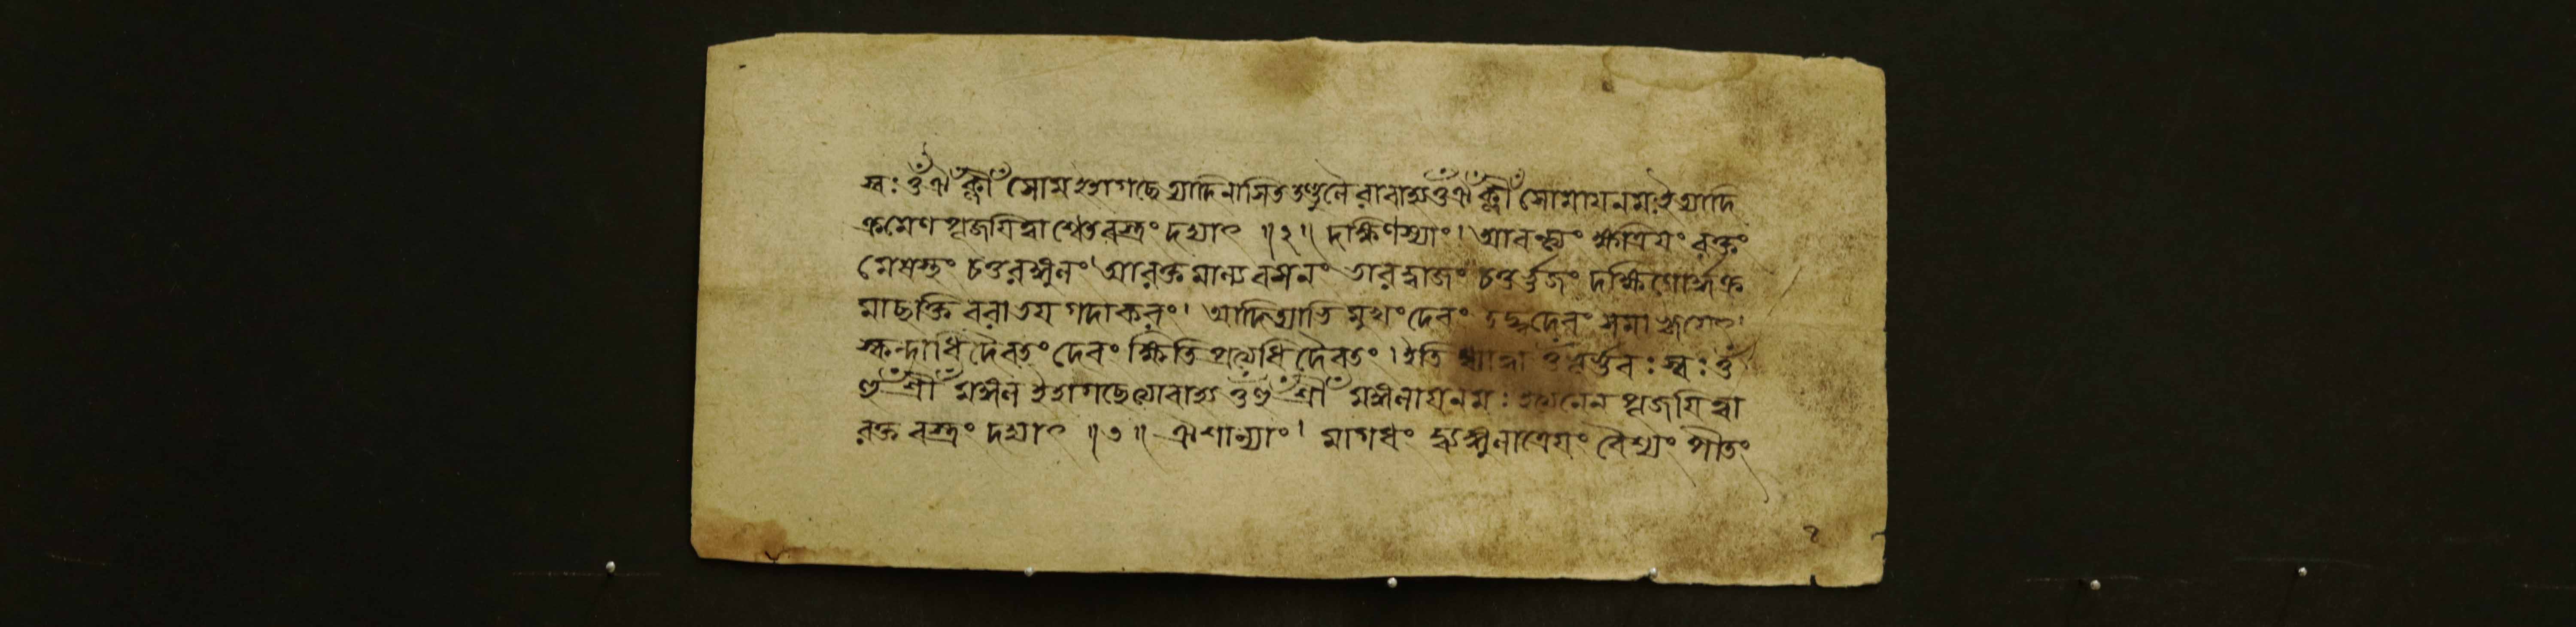 স্বঃ ওঁ ঐঁ ক্লীঁ সোম ইহাগচ্ছেত্যাদিনা সিততণ্ডুলৈরাবাহ্য ওঁ ঐঁ ক্লীঁ সোমায নম ইত্যাদি
ক্রমেণ পূজযিত্বা শ্বেতবস্ত্রং দদ্যাৎ ॥২॥ দক্ষিণস্যাং। আবন্ত্যং ক্ষত্রিযং রক্তং
মেষস্থং চতুরঙ্গুলং আরক্তমাল্যবসনং ভারদ্বাজং চতুর্ভুজং দক্ষিণোর্দ্ধক্র
মাচ্ছক্তিবরাভযগদাকরং। আদিত্যাভিমুখং দেবং তদ্বদেবং সমাহ্বযেৎ।
স্কন্দাধিদৈবতং দেবং ক্ষিতিপ্রত্যধিদৈবতং। ইতি ধ্যাত্বা ওঁ ভূর্ভুবঃ স্বঃ ওঁ
হূঁ শ্রীঁ মঙ্গল ইহাগচ্ছেত্যাবাহ্য ওঁ হূঁ শ্রীঁ মঙ্গলায নমঃ ইত্যনেন পূজযিত্বা
রক্তবস্ত্রং দদ্যাৎ ॥৩॥ ঐশান্যাং। মাগধং দ্ব্যঙ্গুলাত্রেযং বৈশ্যং পীতং